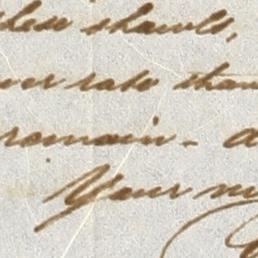 these shawls,
ver rate than
remain - a
Your m